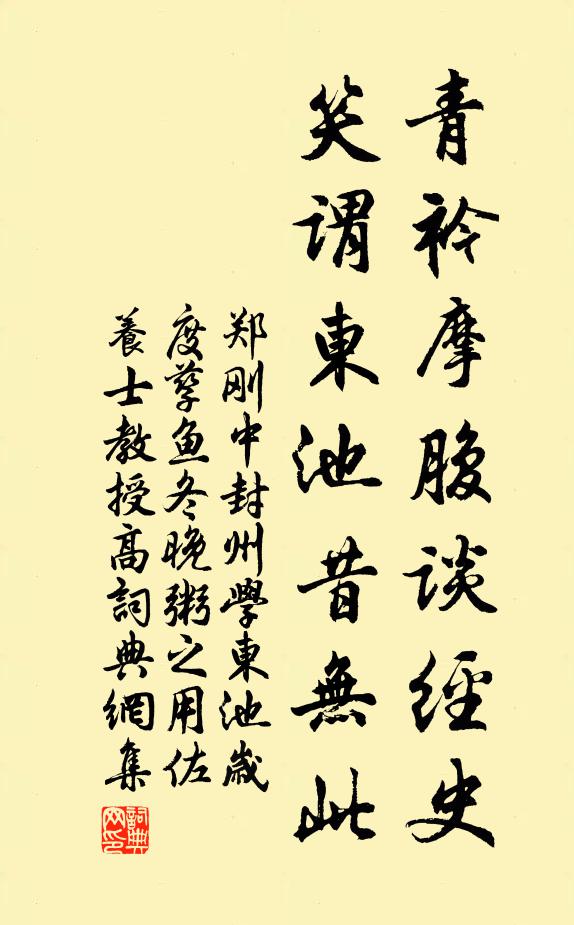 青衿摩腹谈經史
笑謂東池昔無此
郑刚中封州學東池歲
度孳鱼冬晚粥之用佐
養士教授高詞典網集
詞典網印